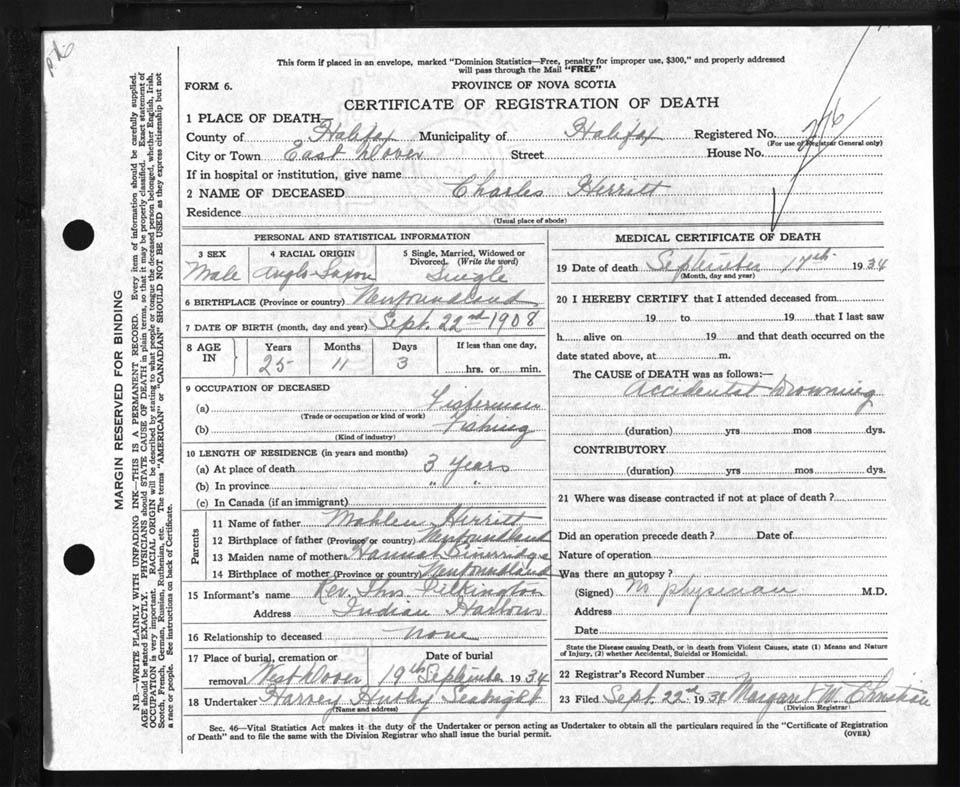 This form if placed in an envelope, marked "Dominion Statistics—Free, penalty for improper use, $300," and properly addressed
will pass through the Mail "FREE"
FORM 6.
PROVINCE OF NOVA SCOTIA
CERTIFICATE OF REGISTRATION OF DEATH
1 PLACE OF DEATH
County of Halifax Municipality of Halifax Registered No. 276
(For use of Registrar General only)
City or Town East Dover Street House No.
If in hospital or institution, give name
2 NAME OF DECEASED Charles Herritt
Residence
(Usual place of abode)
PERSONAL AND STATISTICAL INFORMATION
3 SEX 4 RACIAL ORIGIN 5 Single, Married, Widowed or
Divorced. (Write the word)
Male Anglo-Saxon Single
6 BIRTHPLACE (Province or country) Newfoundland
7 DATE OF BIRTH (month, day and year) Sept. 22nd 1908
8 AGE IN Years Months Days If less than one day,
25 11 3 hrs. or min.
9 OCCUPATION OF DECEASED
(a) Fisherman
(Trade or occupation or kind of work)
(b) Fishing
(Kind of industry)
10 LENGTH OF RESIDENCE (in years and months)
(a) At place of death 3 Years
(b) In province " "
(c) In Canada (if an immigrant)
Parents
11 Name of father Mahlen Herritt
12 Birthplace of father (Province or country) Newfoundland
13 Maiden name of mother Hannah
14 Birthplace of mother (Province or country) Newfoundland
15 Informant's name Rev. Thos. Pilkington
Address Indian Harbour
16 Relationship to deceased none
17 Place of burial, cremation or Date of burial
removal West Dover 19th September 1934
18 Undertaker Harvey Hubley Seabright
(Name and address)
MEDICAL CERTIFICATE OF DEATH
19 Date of death September 17th 1934
(Month, day and year)
20 I HEREBY CERTIFY that I attended deceased from
19 to 19 that I last saw
h alive on 19 and that death occurred on the
date stated above, at m.
The CAUSE OF DEATH was as follows:—
Accidental Drowning
(duration) yrs mos dys.
CONTRIBUTORY
(duration) yrs mos dys.
21 Where was disease contracted if not at place of death?
Did an operation precede death? Date of
Nature of operation
Was there an autopsy?
(Signed) No physician M.D.
Address
Date
State the Disease causing Death, or in death from Violent Causes, state (1) Means and Nature
of Injury, (2) whether Accidental, Suicidal or Homicidal.
22 Registrar's Record Number
23 Filed Sept. 22nd 1934 Margaret M. Christian
(Division Registrar)
Sec. 46—Vital Statistics Act makes it the duty of the Undertaker or person acting as Undertaker to obtain all the particulars required in the "Certificate of Registration
of Death" and to file the same with the Division Registrar who shall issue the burial permit.
(OVER)
MARGIN RESERVED FOR BINDING
N.B.—WRITE PLAINLY WITH UNFADING INK—THIS IS A PERMANENT RECORD. Every item of information should be carefully supplied.
AGE should be stated EXACTLY. PHYSICIANS should STATE CAUSE OF DEATH in plain terms, so that it may be properly classified. Exact statement of
OCCUPATION is very important. RACIAL ORIGIN will be described by stating to what people or tongue the deceased person belonged, whether English, Irish,
Scotch, French, German, Russian, Ruthenian, etc. The terms "AMERICAN" or "CANADIAN" SHOULD NOT BE USED as they express citizenship but not
a race or people. See instructions on back of Certificate.